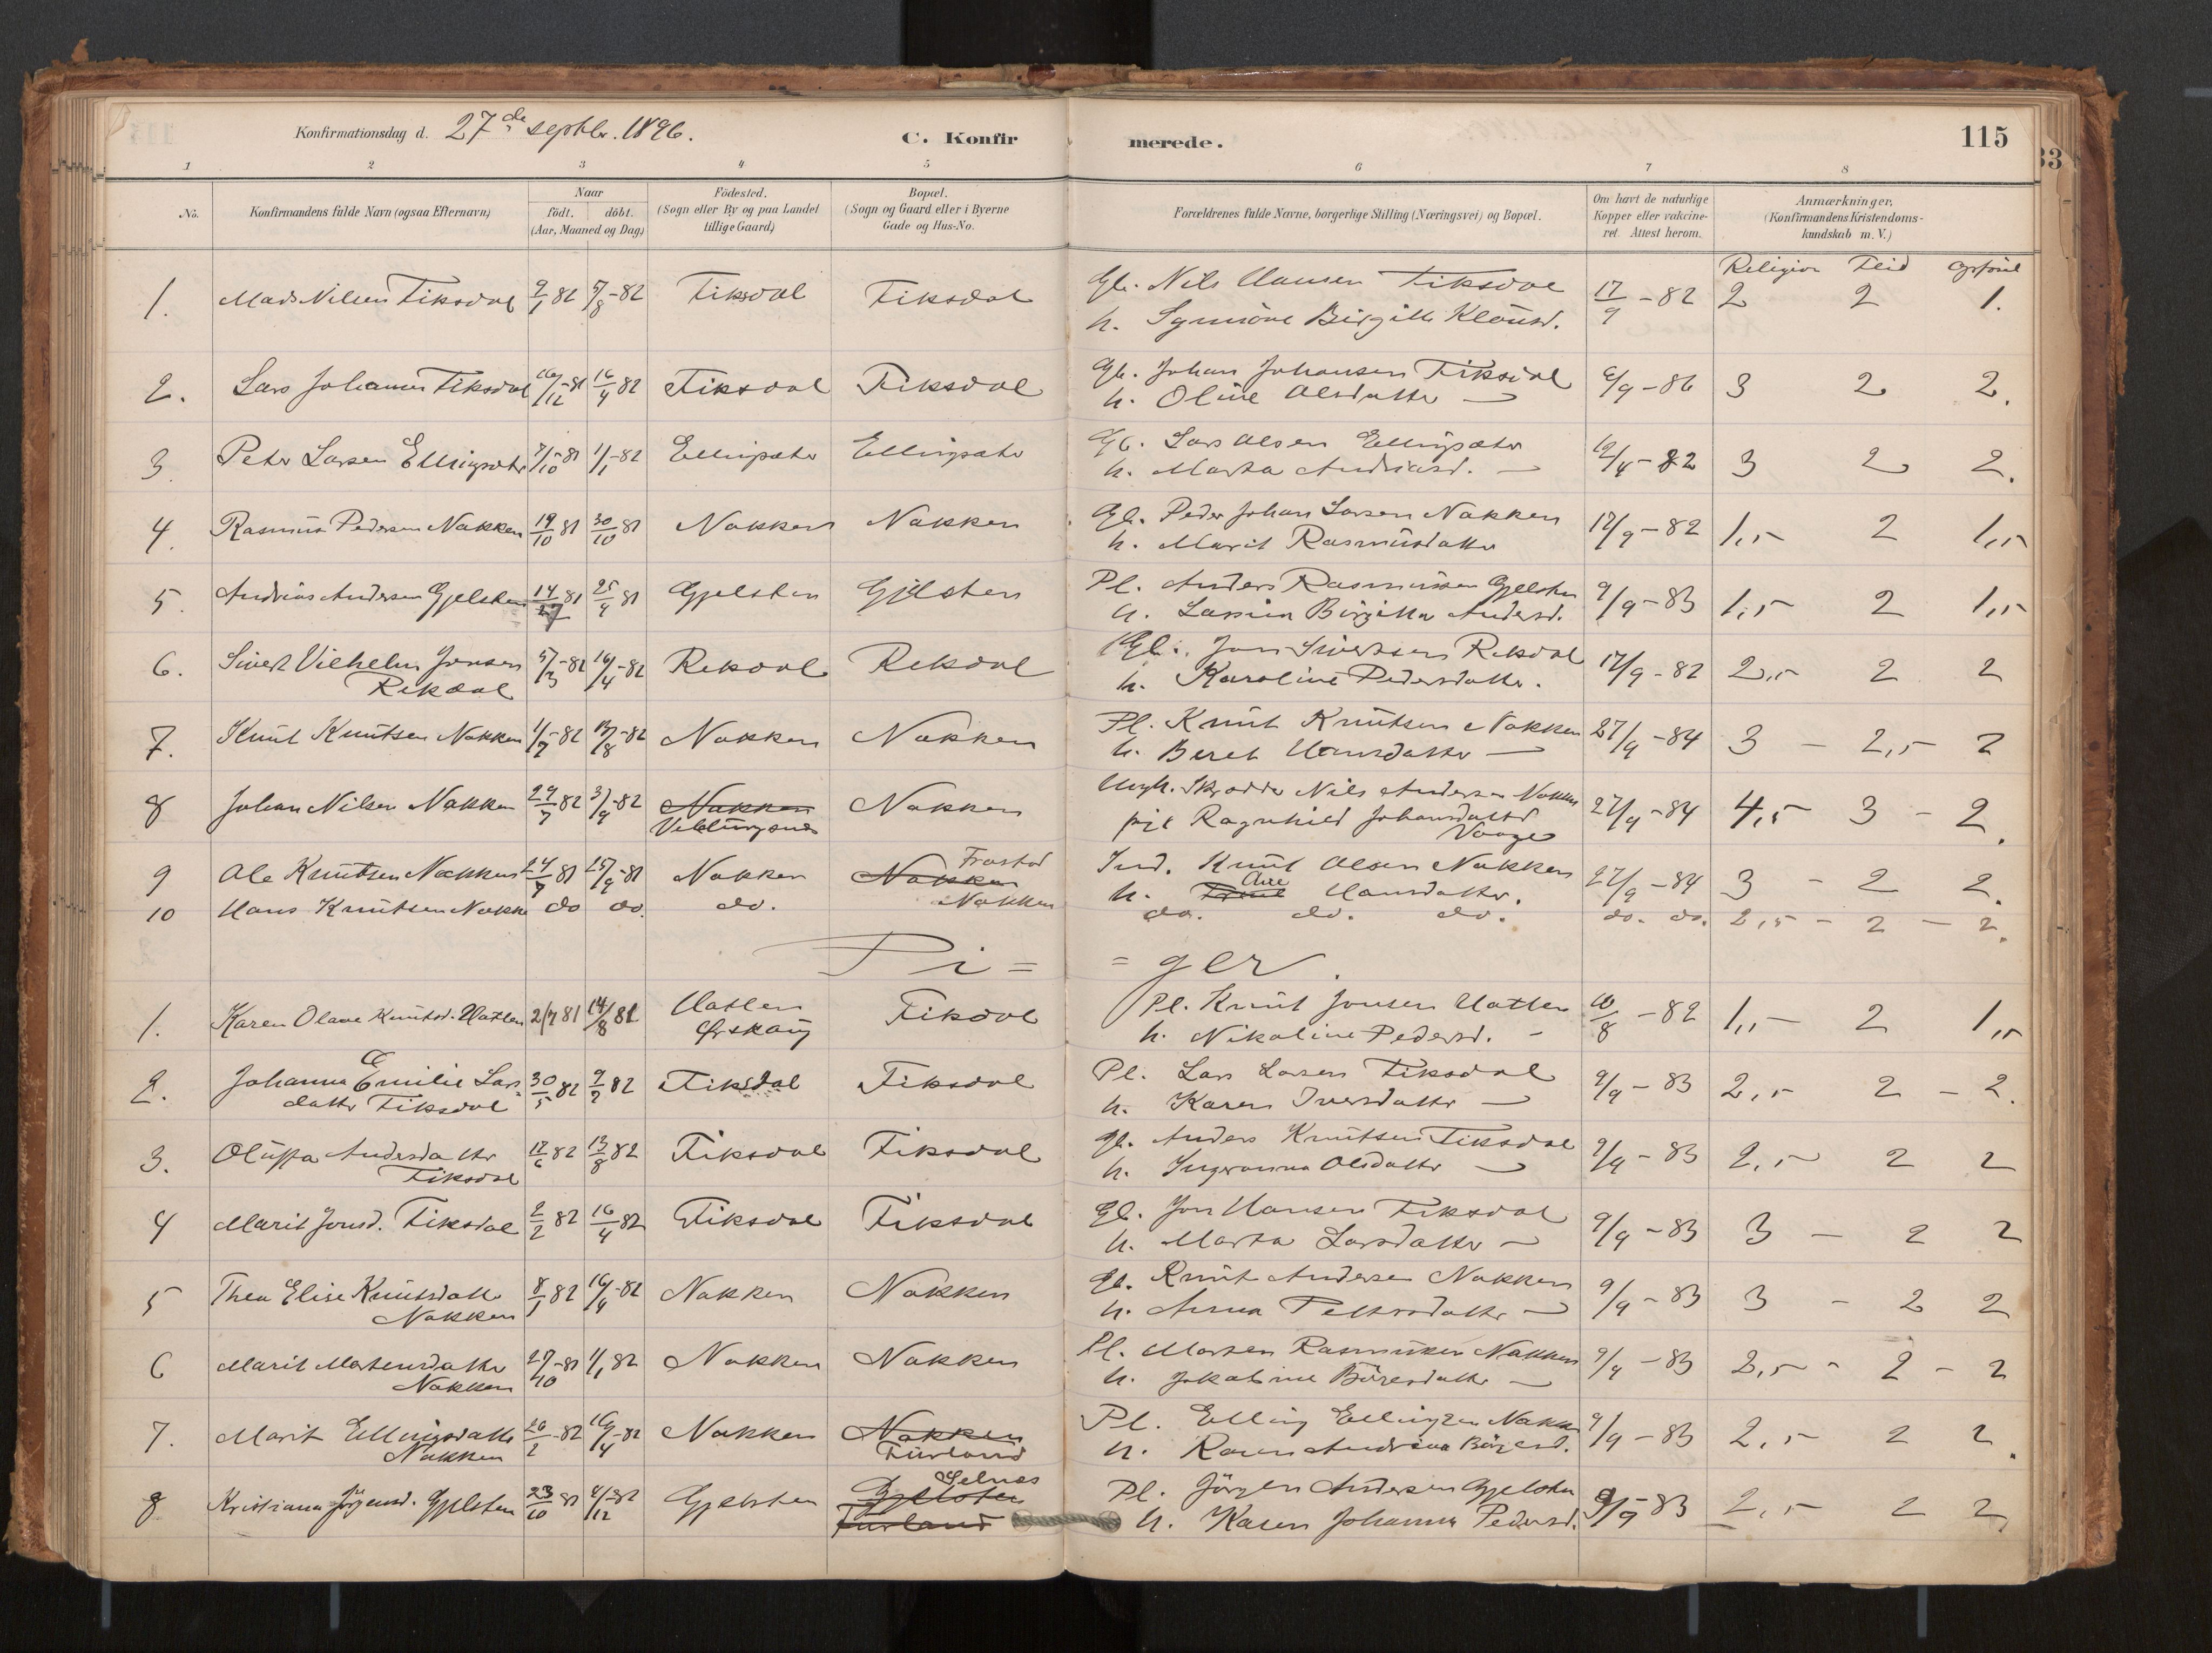 Konfirmationsdag d. 27de septbr. 1896.
C. Konfir
merede.
115
33
1 2 3 4 5 6 7 8
No.
Konfirmandens fulde Navn (ogsaa Efternavn)
Naar
födt. döbt.
(Aar, Maaned og Dag)
Födested.
(Sogn eller By og paa Landet
tillige Gaard)
Bopæl.
(Sogn og Gaard eller i Byerne
Gade og Hus-No.
Forældrenes fulde Navne, borgerlige Stilling (Næringsvei) og Bopæl.
Om havt de naturlige
Kopper eller vakcine-
ret. Attest herom.
Anmærkninger.
(Konfirmandens Kristendoms-
kundskab m. V.)
Religion Flid Opförsel
1. Mads Nilsen Fiksdal 9/1 82 5/8-82 Fiksdal Fiksdal Gb. Nils Hansen Fiksdal 17/9-82 2 2 1.
h. Synnöve Birgitte
2. Lars Johansen Fiksdal 16/12-81 16/4 82 Fiksdal Fiksdal Gb. Johan Johansen Fiksdal 6/9-86 3 2 2.
h. Oline Olsdatter —
3. Peter Larsen Ellingsæter 7/10-81 1/1-82 Ellingsæter Ellingsæter Gb. Lars Olsen Ellingsæter 12/4-82 3 2 2.
h. Marta Andreasd. —
4. Rasmus Pedersen Nakken 19/10 81 30/10 81 Nakken Nakken Gb. Peder Johan Larsen Nakken 17/9-82 1,5 2 1,5
h. Marit Rasmusdatter
5. Andreas Andersen Gjelsten 14/2 81 25/4 81 Gjelsten Gjelsten Pl. Anders Rasmussen Gjelsten 9/9-83 1,5 2 1,5
h. Birgitta Andersd.
6. Sivert Vilhelm Jonsen 5/3-82 16/4-82 Rekdal Rekdal Gb. Jon Sivertsen Rekdal 17/9-82 2,5 2 2
Rekdal h. Karoline Pedersdatter.
7. Knut Knutsen Nakken 1/7-82 13/8-82 Nakken Nakken Pl. Knut Knutsen Nakken 27/9-84 3 - 2,5 - 2
h. Beret Hansdatter —
8 Johan Nilsen Nakken 29/7 82 3/9-82 Nakken Nakken Ungk. Nils Andersen Nakken 27/9-84 4,5 3 - 2.
Veblungsnes pige Ragnhild Johansdatter
Vaage
9 Ole Knutsen Nakken 24/7 81 25/9-81 Nakken Nakken Frostad Ind. Knut Olsen Nakken 27/9-84 3 - 2 2.
h. Ane Hansdatter.
10 Hans Knutsen Nakke do do. do. Nakken do. do. do. do. do. 2,5 - 2 - 2.
Pi= =ger.
1. Karen Olave Knutsd. Hatlen 2/7 81 14/8 81 Hatlen Fiksdal Pl. Knut Jonsen Hatlen 10/8-82 1,5 2 1,5
Ørskoug h. Nikoline Pedersd. -
2. Johanna Emilie Lars= 30/5 82 9/7 82 Fiksdal Fiksdal Pl. Lars Larsen Fiksdal 9/9-83 2,5 2 - 2.
datter Fiksdal h. Karen Iversdatter —
3. Oluffa Andersdatter 17/6 82 13/8 82 Fiksdal Fiksdal Gb. Anders Knutsen Fiksdal 9/9-83 2,5 2 2
Fiksdal h. Ingeranna Olsdatter —
4 Marit Jonsd. Fiksdal 2/2 82 16/4 82 Fiksdal Fiksdal Gb. Jon Hansen Fiksdal 9/9-83 3 - 2 2
h. Marta Larsdatter —
5 Thea Elise Knutsdatter 8/1 82 16/4-82 Nakken Nakken Gb. Knut Andersen Nakken 9/9-83 3 - 2 2
Nakken h. Anna Pettersdatter —
6 Marit Mortensdatter 27/10-81 1/1 82 Nakken Nakken Pl. Morten Rasmussen Nakken 9/9-83 2,5 - 2 - 2
Nakken h. Jakobine Börresdatter —
7. Marit Ellingsdatter 26/2-82 16/4-82 Nakken Nakken Pl. Elling Ellingsen Nakken 9/9-83 2,5 2 2.
Nakken Furland h. Karen Andrina Börresd.
8 Kristiana Jörgensd. Gjelsten 23/10 81 4/12-82 Gjelsten Selnes Gjelsten Pl. Jörgen Andersen Gjelsten 9/9-83 2,5 2 2.
Furland h. Karen Johanna Pedersd.